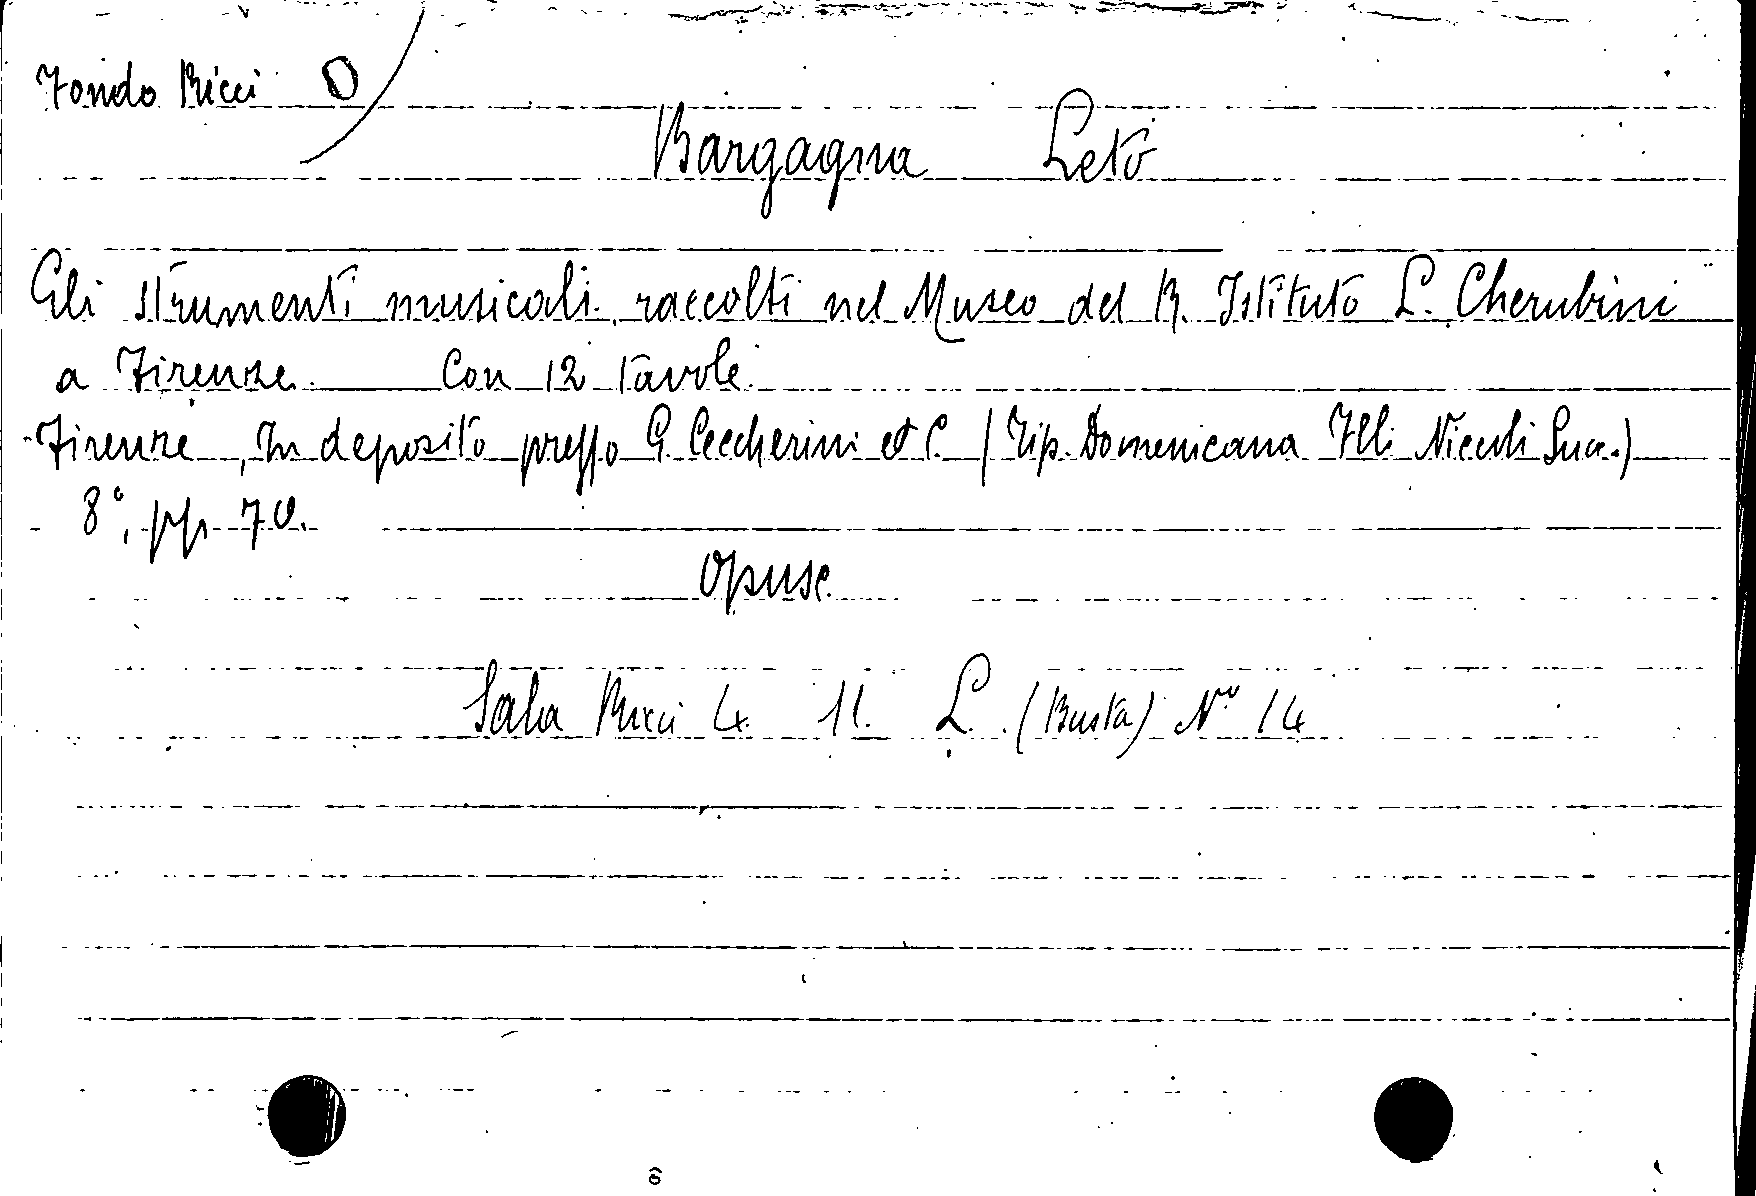 Fondo Ricci O
Bargagna Leto
Gli strumenti musicali raccolti nel Museo del R. Istituto L. Cherubini
a Firenze. Con 12 tavole.
Firenze, In deposito presso G. Ceccherini et C. (Tip. Domenicana Flli Niccoli Succ.)
8°, pp. 70.
Opusc.
Sala Ricci 4. 11. L. (Busta) No 14